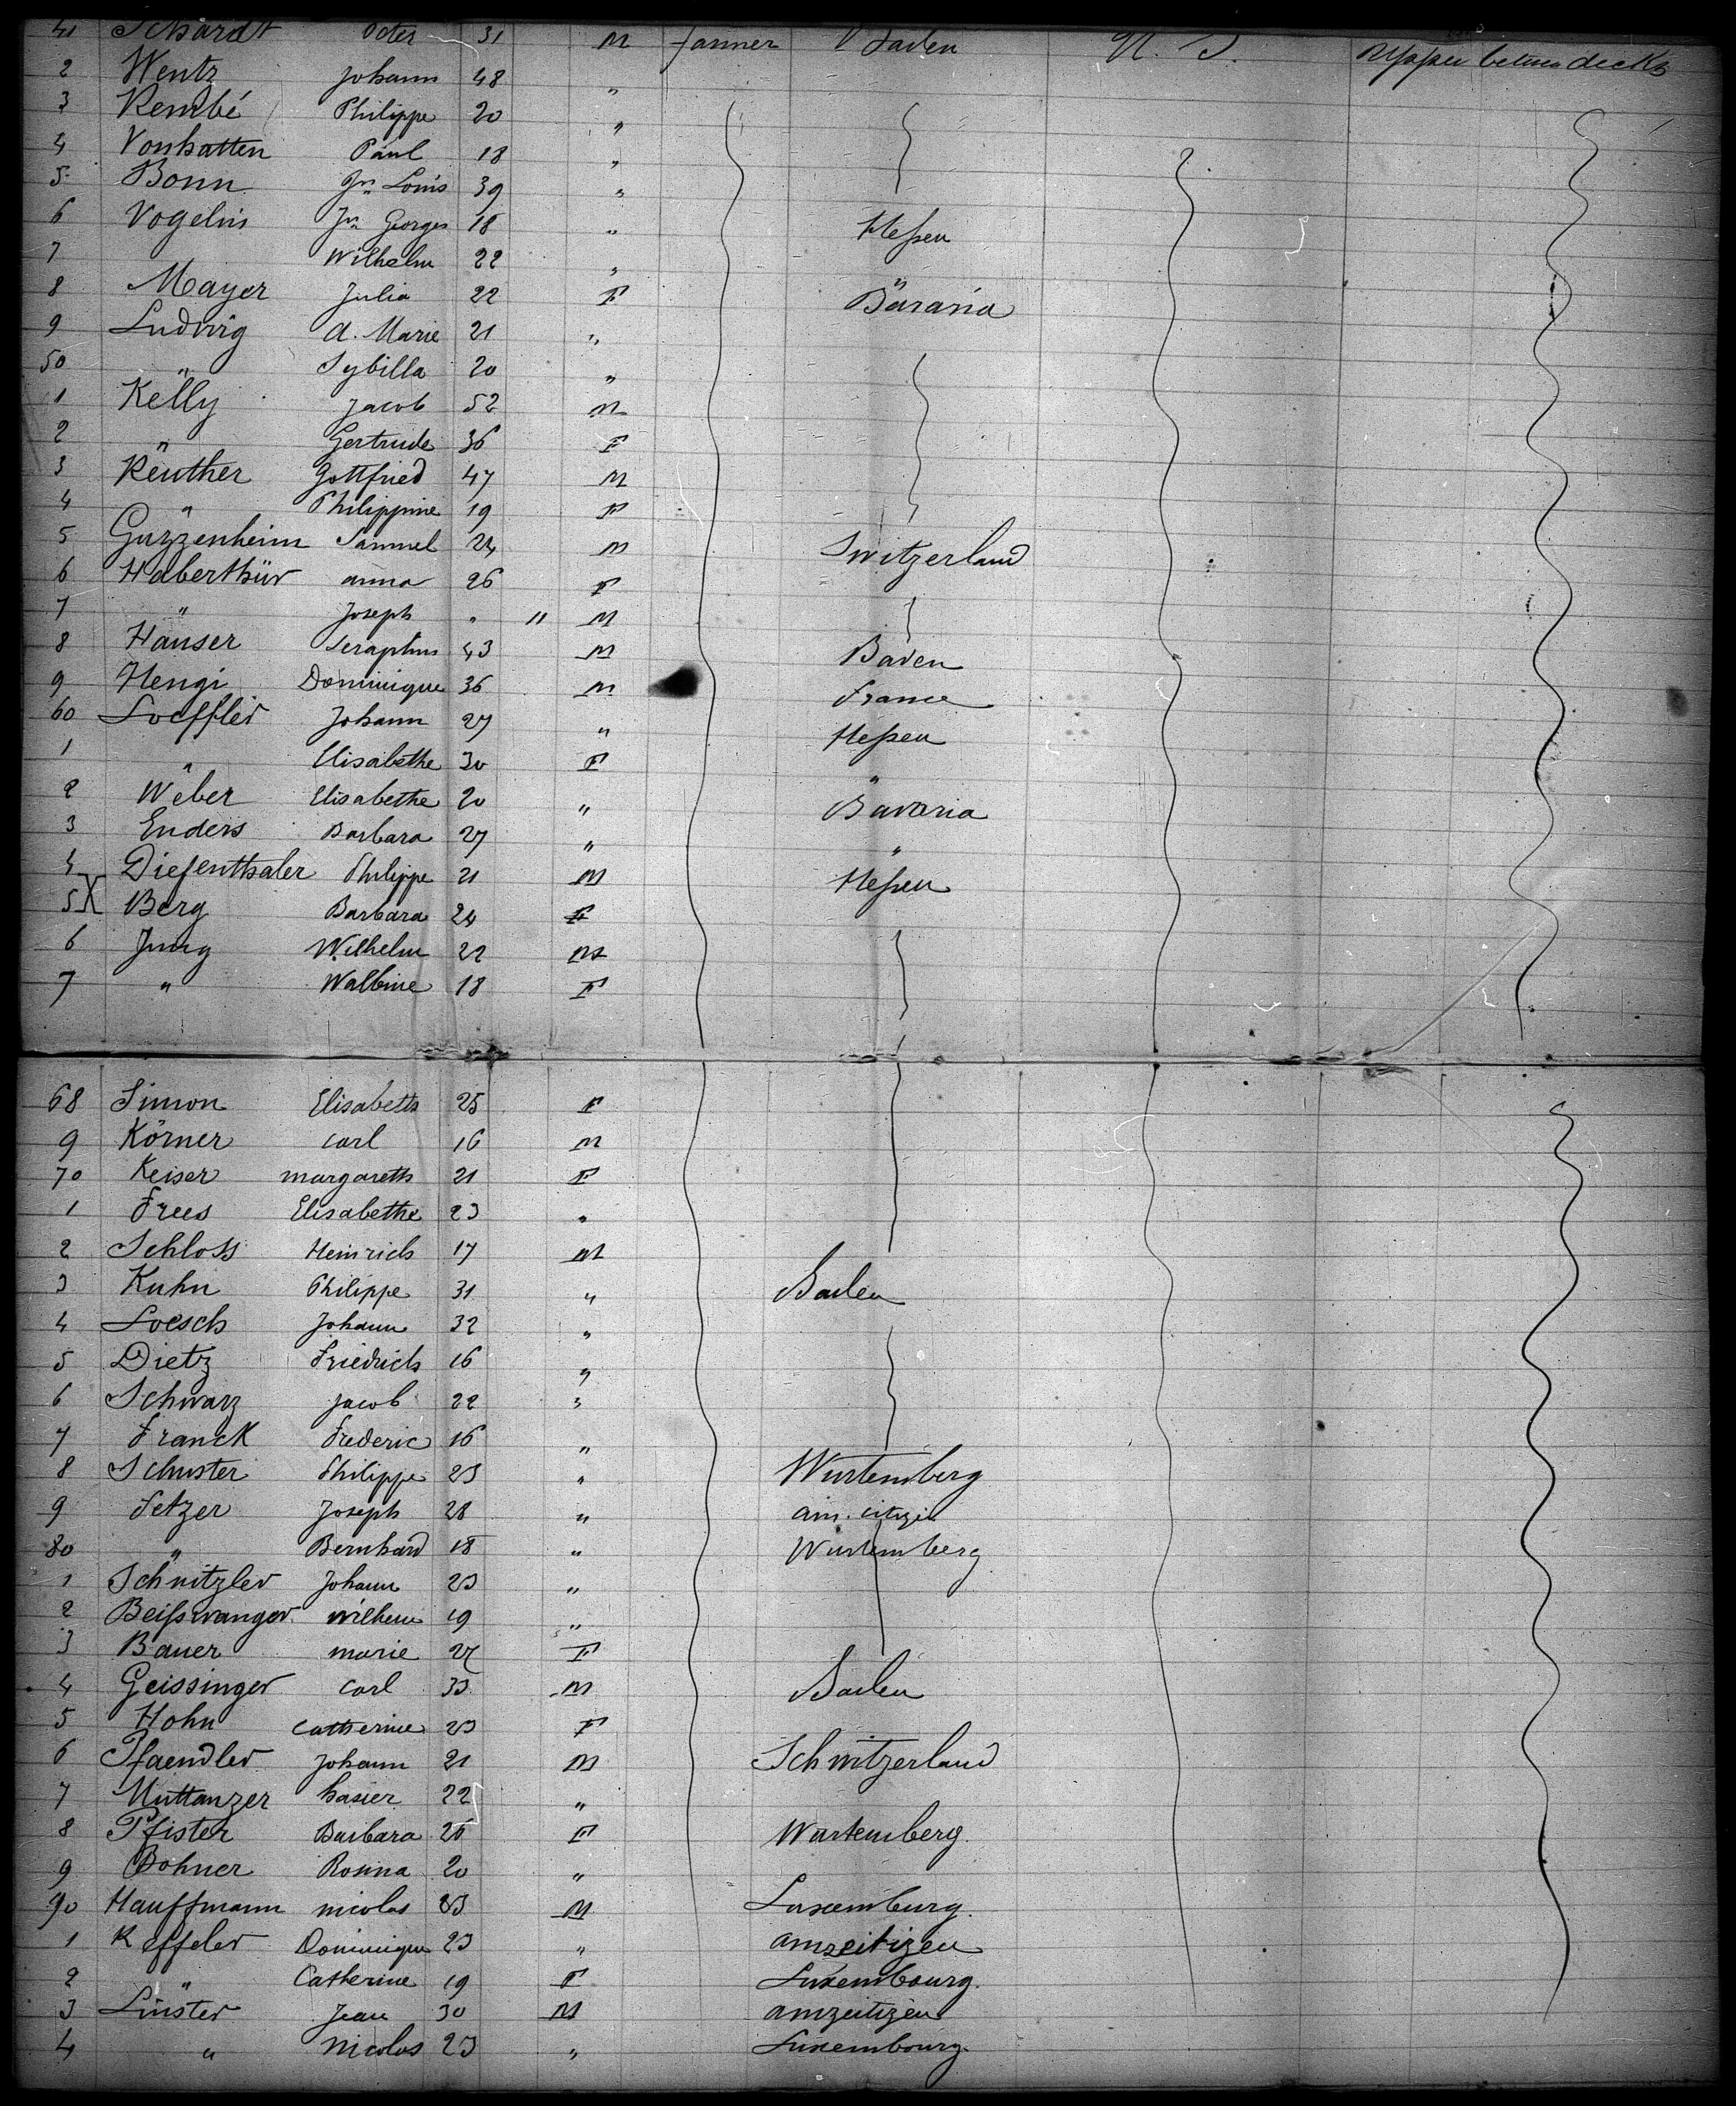 41 Schardt Peter 31 M farmer Baden U. S. Upper betwn decks
2 Wentz Johann 48 "
3 Rembé Philippe 20 "
4 Vonhatten Paul 18 "
5 Bonn Jn Louis 39 "
6 Vogelin Jn Georges 18 " Heßen
7 Wilhelm 22 " "
8 Mayer Julia 22 F Bavaria
9 Ludwig A. Marie 21 "
50 " Sybilla 20 "
1 Kelly Jacob 52 M
2 " Gertrude 36 F
3 Reuther Gottfried 47 M
4 " Philippine 19 F
5 Guzzenheim Samuel 24 M Switzerland
6 Haberthür anna 26 F
7 " Joseph " " M
8 Hauser Seraphin 43 M Baden
9 Hengi Dominique 36 M France
60 Loeffler Johann 27 " Heßen
1 " Elisabethe 30 F "
2 Weber Elisabethe 20 " Bavaria
3 Enders Barbara 27 " "
4 Diefenthaler Philippe 21 M Heßen
5 X Berg Barbara 24 F
6 Jung Wilhelm 22 M
7 " Walbine 18 F
68 Simon Elisabeth 25 F
9 Körner carl 16 M
70 Keiser margareth 21 F
1 Frees Elisabethe 23 "
2 Schloss Heinrich 17 M
3 Kuhn Philippe 31 " Baden
4 Loesch Johann 32 "
5 Dietz Friedrich 16 "
6 Schwarz Jacob 22 "
7 Franck Frederic 16 "
8 Schuster Philippe 23 " Wurtemberg
9 Fetzer Joseph 28 " am. citizen
80 " Bernhard 18 " Wurtemberg
1 Schnitzler Johann 23 "
2 Beißwanger wilhem 19 "
3 Bauer marie 27 F
4 Geissinger Carl 33 M Baden
5 Hohn Catherine 23 F
6 Pfaendler Johann 21 M Schwitzerland
7 Muttanzer 22 "
8 Pfister Barbara 26 F Wurtemberg.
9 Bohner Rosina 20 "
90 Hauffmann nicolas 23 M Luxemburg.
1 Keffeler Dominique 23 " amzcitizen
2 " Catherine 19 F Luxembourg.
3 Linster Jean 30 M amzcitizen
4 " Nicolas 23 " Luxembourg.